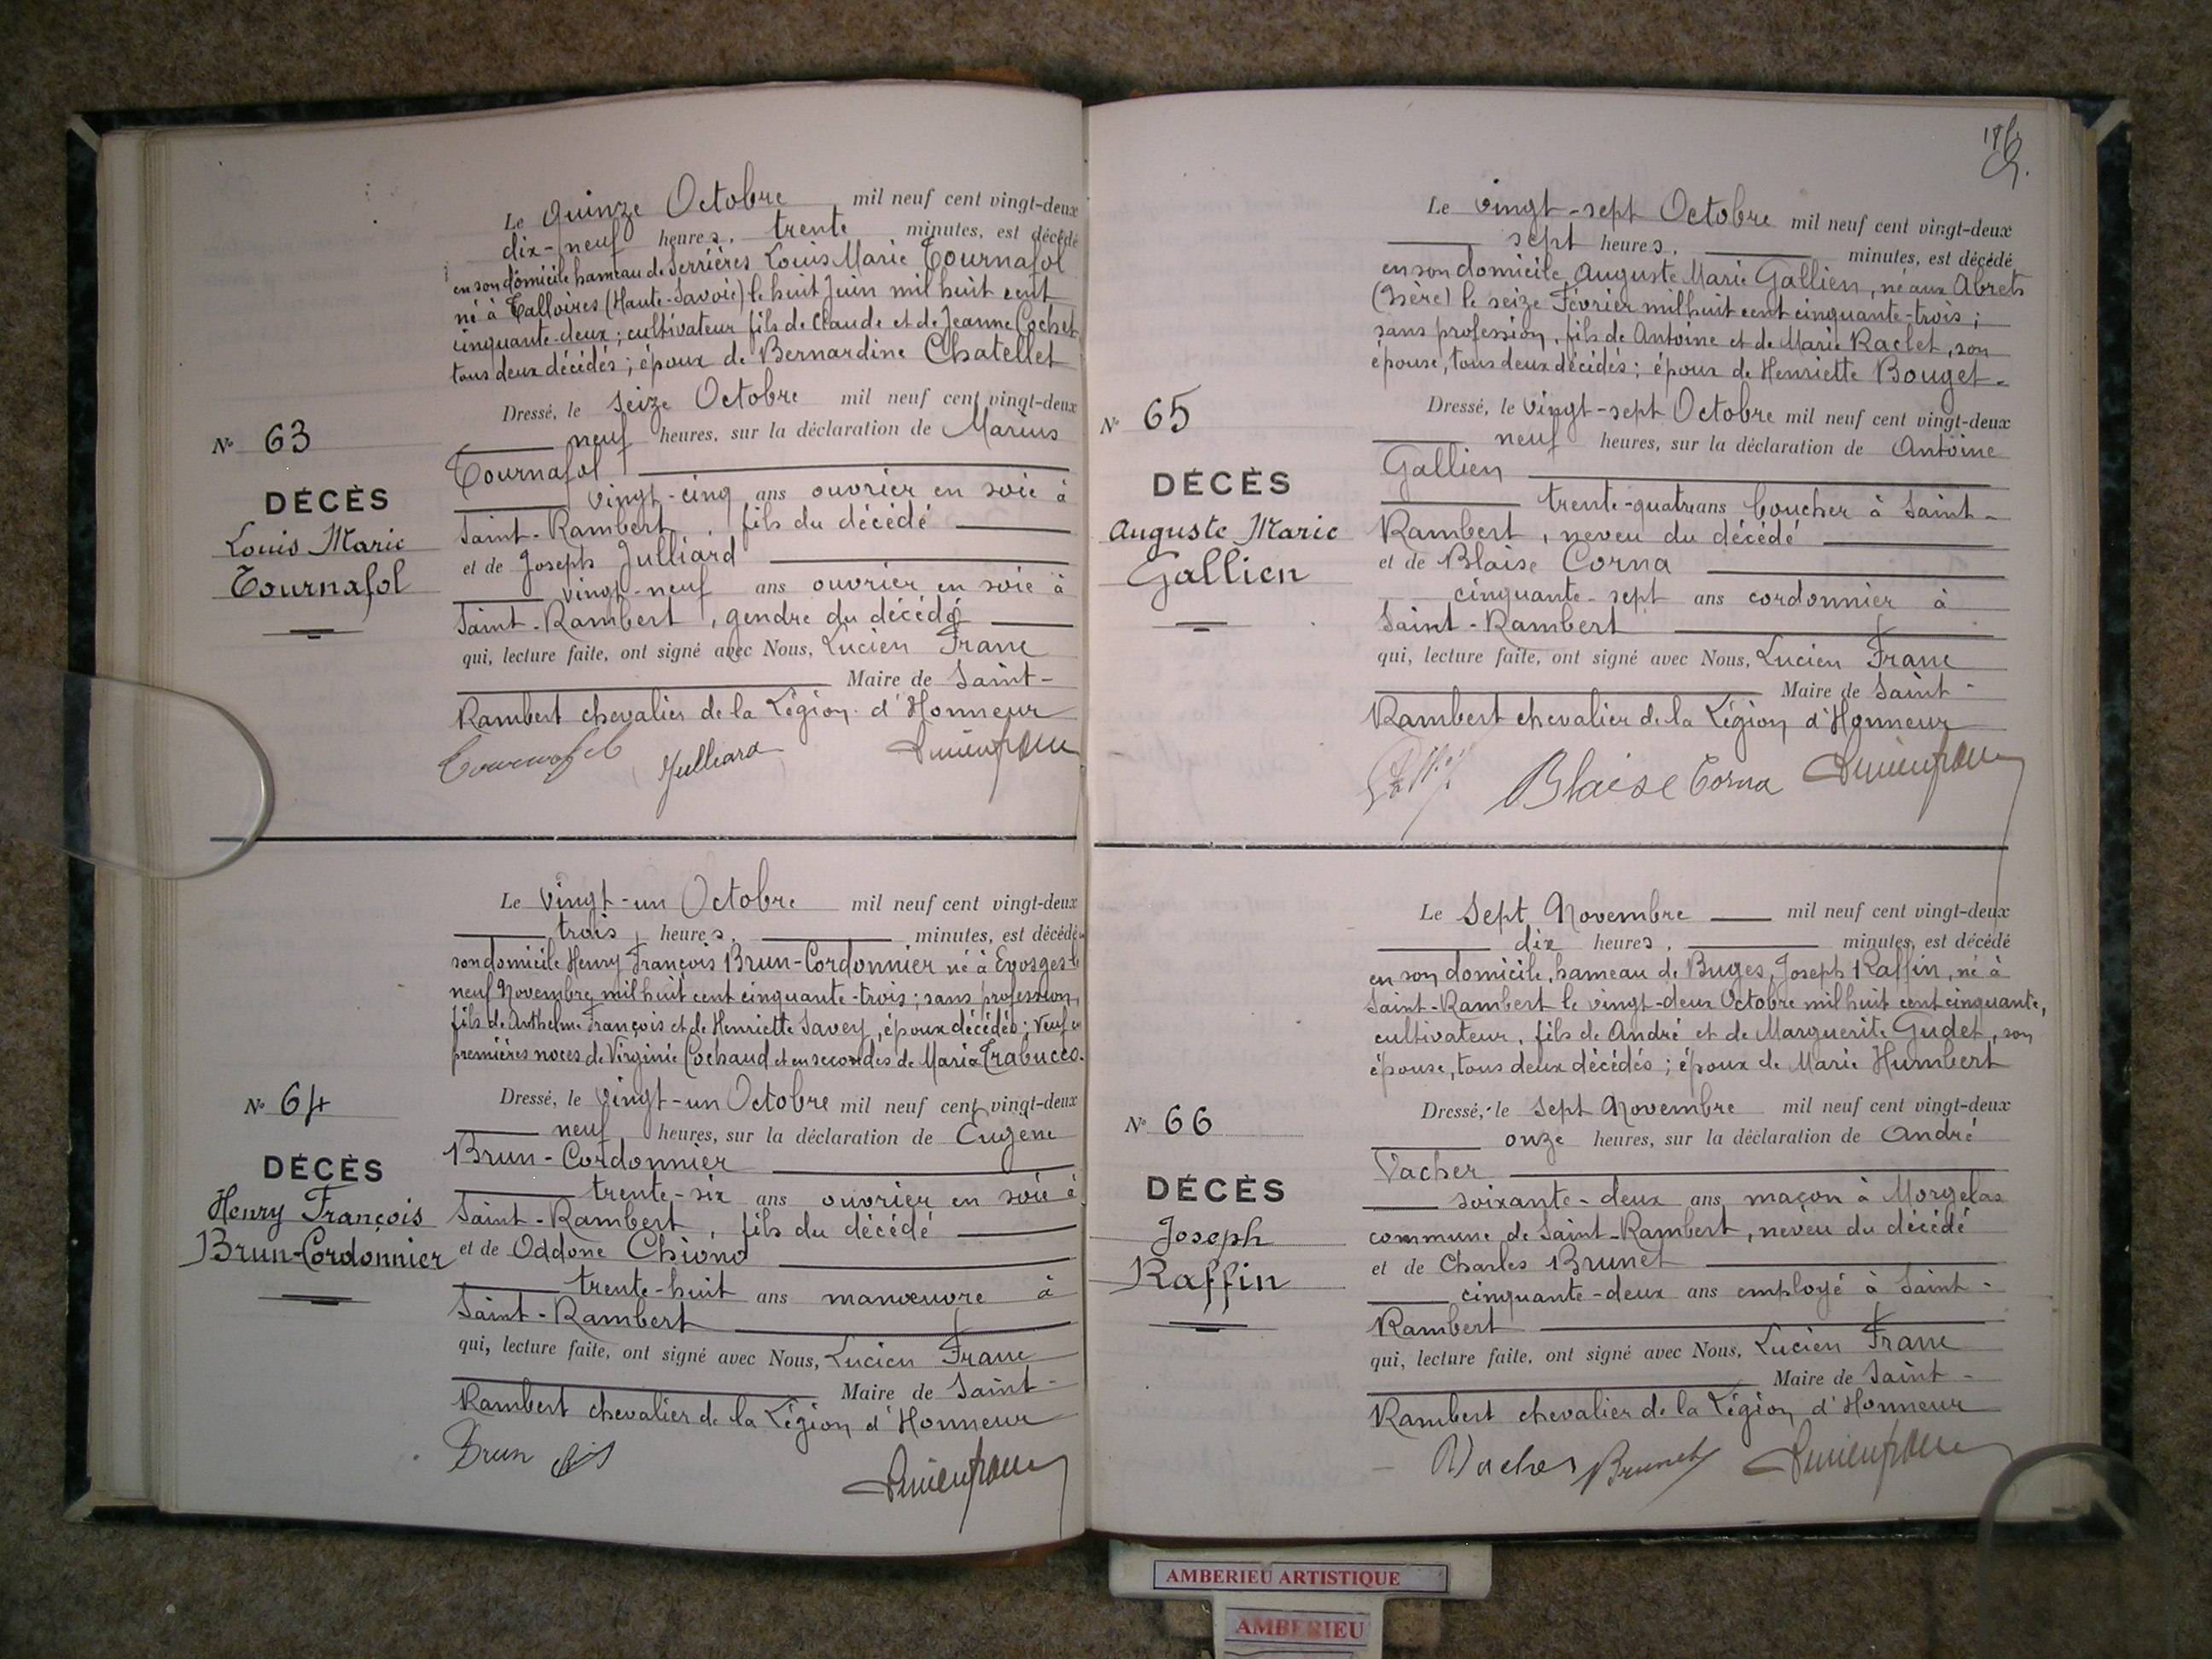 Le Quinze Octobre mil neuf cent vingt-deux
dix-neuf heures, trente minutes, est décédé
en son domicile hameau de Serrières Louis Marie Tournafol
né à Talloires (Haute-Savoie) le huit Juin mil huit cent
cinquante-deux; cultivateur fils de Claude et de Jeanne Cochet
tous deux décédés; époux de Bernardine Chatellet
Dressé, le Seize Octobre mil neuf cent vingt-deux
neuf heures, sur la déclaration de Marius
Tournafol
vingt-cinq ans ouvrier en soie à
Saint-Rambert, fils du décédé
et de Joseph Julliard
vingt-neuf ans ouvrier en soie à
Saint-Rambert, gendre du décédé
qui, lecture faite, ont signé avec Nous, Lucien Franc
Maire de Saint-
Rambert chevalier de la Légion d'Honneur
Tournafol Julliard Lucien Franc
No 63
DÉCÈS
Louis Marie
Tournafol
Le Vingt-un Octobre mil neuf cent vingt-deux
trois heures, minutes, est décédé en
son domicile Henry François Brun-Cordonnier né à Evosges le
neuf Novembre mil huit cent cinquante-trois; sans profession,
fils de Anthelme François et de Henriette Savey, époux décédés; veuf en
premières noces de Virginie Cochaud et en secondes de Maria Trabucco.
Dressé, le Vingt-un Octobre mil neuf cent vingt-deux
neuf heures, sur la déclaration de Eugène
Brun-Cordonnier
trente-six ans ouvrier en soie à
Saint-Rambert, fils du décédé
et de Oddone Chiono
trente-huit ans manœuvre à
Saint-Rambert
qui, lecture faite, ont signé avec Nous, Lucien Franc
Maire de Saint-
Rambert chevalier de la Légion d'Honneur
Brun Lucien Franc
No 64
DÉCÈS
Henry François
Brun-Cordonnier
Le vingt-sept Octobre mil neuf cent vingt-deux
sept heures, minutes, est décédé
en son domicile Auguste Marie Gallien, né aux Abrets
(Isère) le seize Février mil huit cent cinquante-trois;
sans profession, fils de Antoine et de Marie Raclet, son
épouse, tous deux décédés; époux de Henriette Bouget-
Dressé, le Vingt-sept Octobre mil neuf cent vingt-deux
neuf heures, sur la déclaration de Antoine
Gallien
trente-quatre ans boucher à Saint-
Rambert, neveu du décédé
et de Blaise Corna
cinquante-sept ans cordonnier à
Saint-Rambert
qui, lecture faite, ont signé avec Nous, Lucien Franc
Maire de Saint-
Rambert chevalier de la Légion d'Honneur
Blaise Corna Lucien Franc
No 65
DÉCÈS
Auguste Marie
Gallien
Le Sept Novembre mil neuf cent vingt-deux
dix heures, minutes, est décédé
en son domicile, hameau de Buges, Joseph Raffin, né à
Saint-Rambert le vingt-deux Octobre mil huit cent cinquante,
cultivateur, fils de André et de Marguerite Gudet, son
épouse, tous deux décédés; époux de Marie Humbert
Dressé, le Sept Novembre mil neuf cent vingt-deux
onze heures, sur la déclaration de André
Vacher
soixante-deux ans, maçon à Morgelas
commune de Saint-Rambert, neveu du décédé
et de Charles Brunet
cinquante-deux ans employé à Saint-
Rambert
qui, lecture faite, ont signé avec Nous, Lucien Franc
Maire de Saint-
Rambert chevalier de la Légion d'Honneur
Vacher Brunet Lucien Franc
No 66
DÉCÈS
Joseph
Raffin
AMBERIEU ARTISTIQUE
AMBERIEU